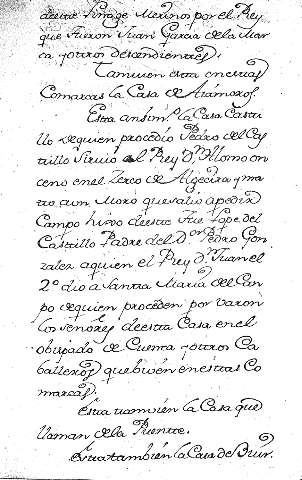 de este linage Merinos por el Rey
que fueron Juan Garcia de la Mar
ca y otros descendientes.
Tamvien esta en estas
Comarcas la Casa de
Esta ansimº la Casa Casti
llo de quien procedio Pedro del Cas
tillo sirvio al Rey Dº Alonso on
ceno en el Zerco de Algecira y ma
to a un Moro que salio a pedir
Campo hijo de este fue Lope del
Castillo Padre del Dºʳ Pedro Gon
zalez a quien el Rey Dº Juan el
2º dio a Santa Maria del Can
po de quien proceden por varon
los señores de esta Casa en el
obispado de Cuenca y otros Ca
balleros que biven en estas Co
marcas.
Esta tamvien la Casa que
llaman de la Puente.
Esta tambien la Casa de